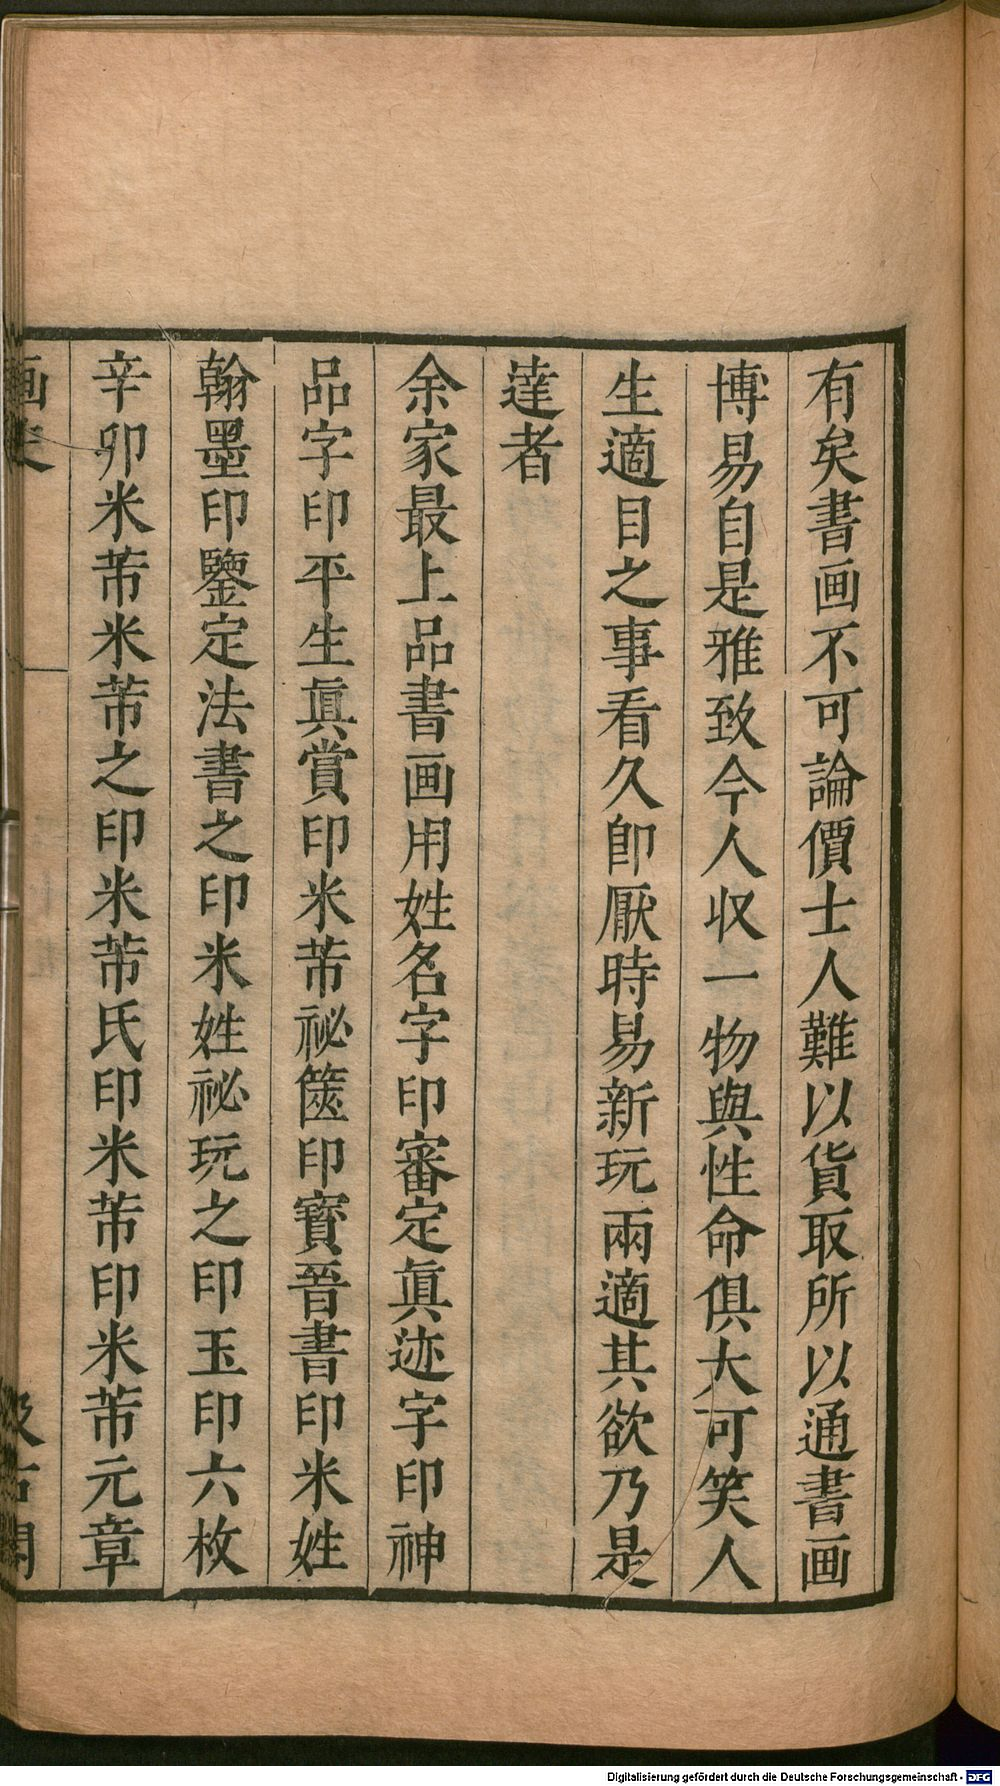 有矣書画不可論價士人難以貨取所以通書画
博易自是雅致今人收一物與性命俱大可笑人
生適目之事看久即厭時易新玩兩適其欲乃是
達者
余家最上品書画用姓名字印審定眞迹字印神
品字印平生眞賞印米芾祕篋印寶晉書印米姓
翰墨印鑒定法書之印米姓祕玩之印玉印六枚
辛卯米芾米芾之印米芾氏印米芾印米芾元章
画史
汲古閣
Digitalisierung gefördert durch die Deutsche Forschungsgemeinschaft - DFG